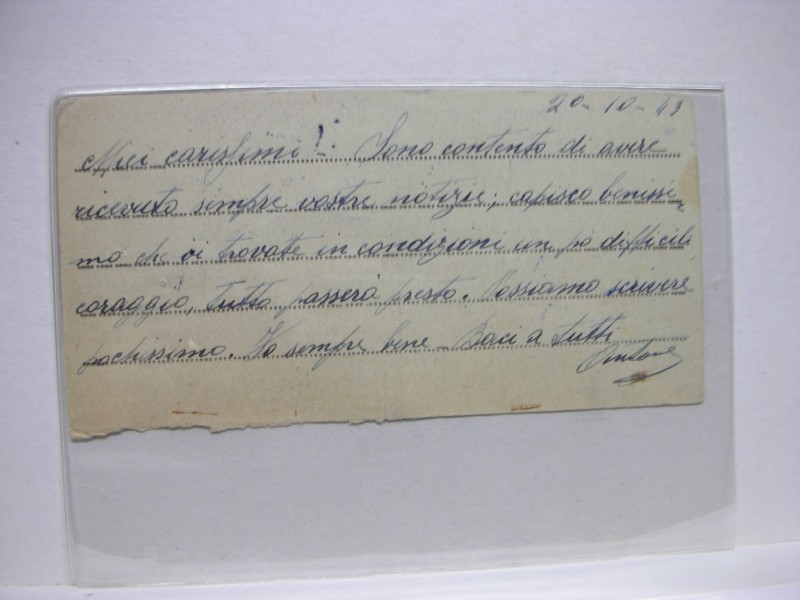 20-10-43
Miei carissimi! - Sono contento di avere
ricevuto sempre vostre notizie; capisco benissi-
mo che vi trovate in condizioni un pò difficili
coraggio, tutto passerà presto. Possiamo scrivere
pochissimo. Io sempre bene - Baci a tutti